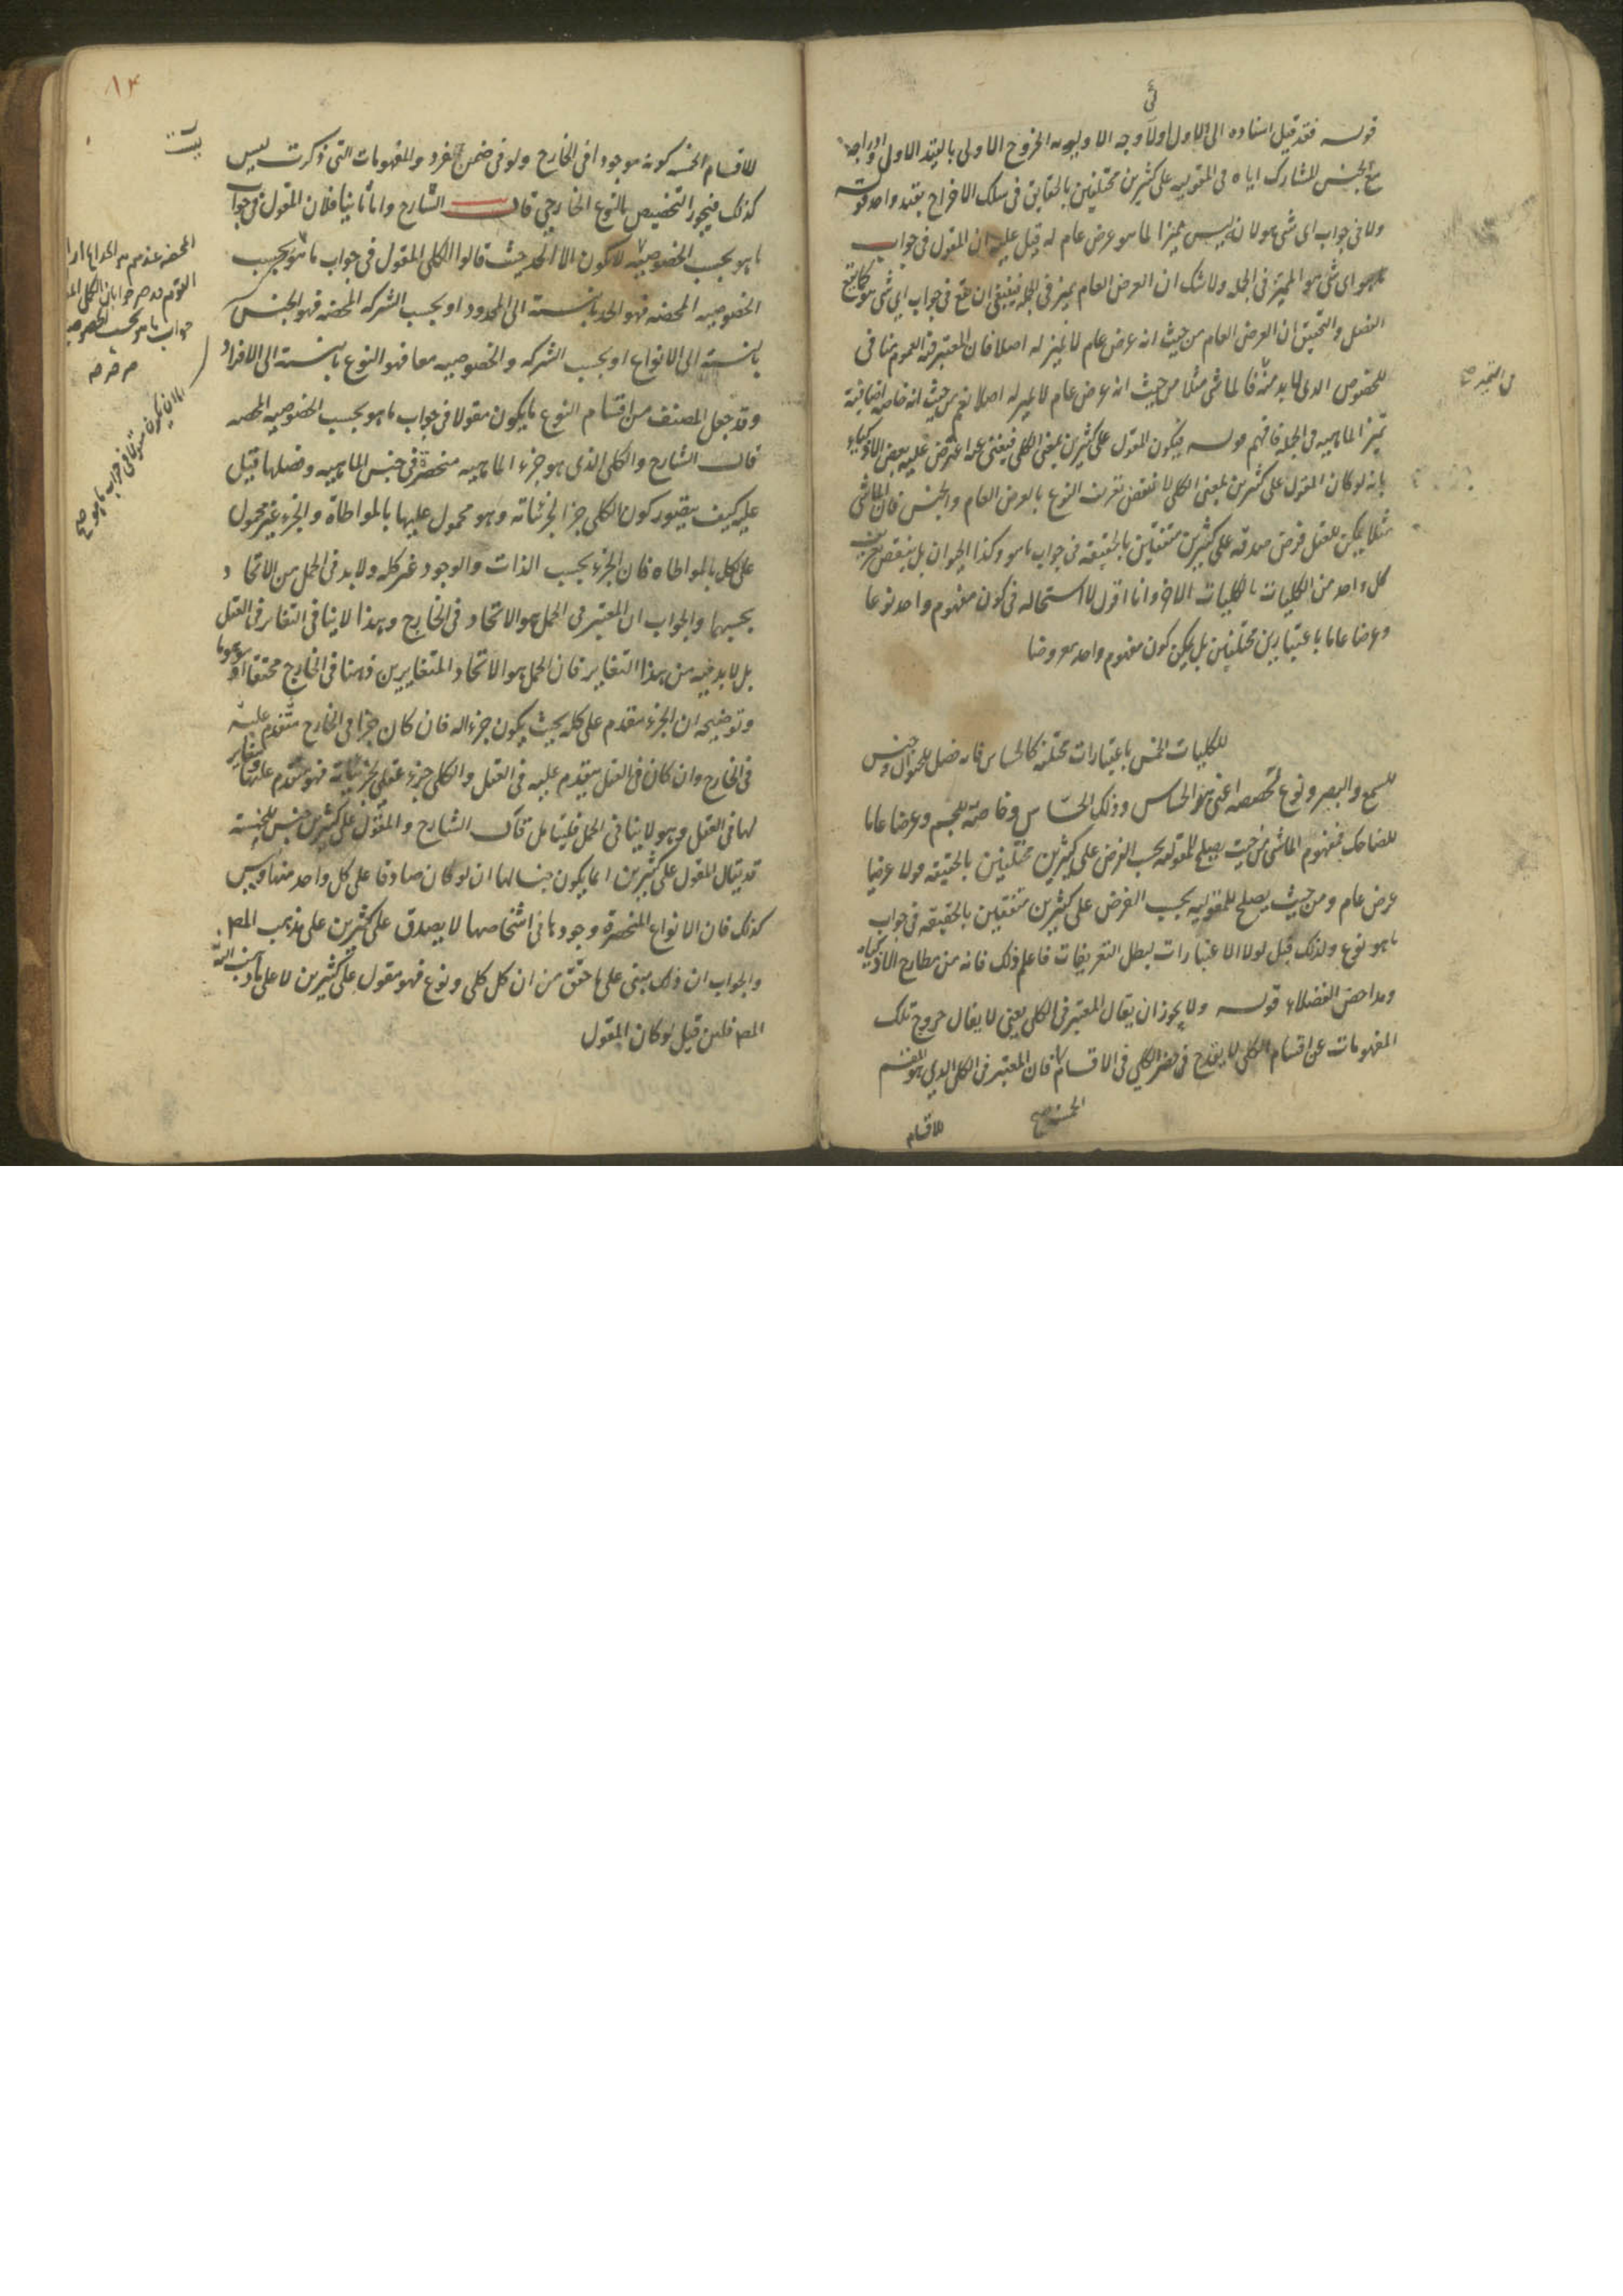 قوله فقد قيل اسناده الى الاول اولى ولا وجه الاولويه الخروج الاولى بالقيد الاولى وادراجه
مع الجنس للمشارك اياه فى المقوليه على كثيرين مختلفين بالحقايق فى سلك الاخراج بقيد واحد قوله
ولا فى جواب اى شى هو لانه ليس مميزا لما هو عرض عام له قيل عليه ان المقول فى جواب
اى شى هو المميز فى الجمله ولا شك ان العرض العام مميز فى الجمله فينبغى ان يقع فى جواب اى شى هو كما يقع
الفصل والتحقيق ان العرض العام من حيث انه عرض عام لا تميز له اصلا فان المعتبر فيه العموم منافى
للخصوص الذى لابد منه فالماشى مثلا من حيث انه عرض عام لا تميز له اصلا نعم من حيث انه خاصه اضافية
من التميز صح
تميز الماهيه فى الجمله فافهم قوله فيكون المقول على كثيرين بمعنى الكلى فيغنى عنه اعترض عليه بعض الاذكياء
بانه لو كان المقول على كثيرين بمعنى الكلى لا نتقض تعريف النوع بالعرض العام والجنس فان الماشى
مثلا يمكن للعقل فرض صدقه على كثيرين متفقين بالحقيقه فى جواب ما هو وكذا الحيوان بل ينتقض تعريف
كل واحد من الكليات بالكليات الاخر وانا اقول لا استحاله فى كون مفهوم واحد نوعا
وعرضا عاما باعتبارين مختلفين بل يمكن كون مفهوم واحد معروضا
للكليات الخمس باعتبارات مختلفه كالحساس فانه فصل للحيوان وجنس
للسمع والبصر ونوع لحصصه اعنى هذا الحساس وذلك الحساس وخاصة للجسم وعرضا عاما
للضاحك فمفهوم الماشى من حيث يصلح للمقوليه بحسب الفرض على كثيرين مختلفين بالحقيقه قولا عرضيا
عرض عام ومن حيث يصلح للمقوليه بحسب الفرض على كثيرين متفقين بالحقيقه فى جواب
ما هو نوع ولذلك قيل لولا الاعتبارات لبطل التعريفات فاعلم ذلك فانه من مطارح الاذكياء
ومداحض الفضلاء قوله ولا يجوز ان يقال المعتبر فى الكلى يعنى لا يقال خروج تلك
المفهومات عن اقسام الكلى لا يقدح فى حصر الكلى فى الاقسام فان المعتبر فى الكلى الذى هو المقسم
الخمسه صح
للاقسام
١٢
للاقسام الخمسه كونه موجودا فى الخارج ولو فى ضمن الفرد والمفهومات التى ذكرت ليس
كذلك فيجوز التخصيص بالنوع الخارجى قال الشارح واما ثانيا فلان المقول فى جواب
ما هو بحسب الخصوصيه لا يكون الا الحد حيث قالوا الكلى المقول فى جواب ما هو بحسب
الخصوصيه المحضه فهو الحد بالنسبة الى المحدود او بحسب الشركه المحضه فهو الجنس
بالنسبة الى الانواع او بحسب الشركه والخصوصيه معا فهو النوع بالنسبة الى الافراد
وقد جعل المصنف من اقسام النوع ما يكون مقولا فى جواب ما هو بحسب الخصوصيه المحضه
قال الشارح والكلى الذى هو جزء الماهيه منحصرة فى جنس الماهيه وفصلها قيل
عليه كيف يتصور كون الكلى جزءا لجزئياته وهو محمول عليها بالمواطاة والجزء غير محمول
على الكل بالمواطاه فان الجزء بحسب الذات والوجود غير كله ولابد فى الحمل من الاتحاد
بحسبهما والجواب ان المعتبر فى الحمل هو الاتحاد فى الخارج وهذا لا ينافى التغاير فى العقل
بل لابد فيه من هذا التغاير فان الحمل هو الاتحاد المتغايرين ذهنا فى الخارج محققا او موهوما
وتوضيحه ان الجزء مقدم على كله بحيث يكون جزءا له فان كان جزءا فى الخارج متقدم عليه
فى الخارج وان كان فى العقل يتقدم عليه فى العقل والكلى جزء عقلى لجزئياته فهو متقدم عليها ومغاير
لها فى العقل وهو لا ينافى الحمل فليتأمل قال الشارح والمقول على كثيرين جنس للخمسة
قد يقال المقول على كثيرين انما يكون جنسا لها ان لو كان صادقا على كل واحد منها وليس
كذلك فان الانواع المنحصرة وجودها فى اشخاصها لا يصدق على كثيرين على مذهب المص
والجواب ان ذلك مبنى على ما حقق من ان كل كلى ونوع فهو مقول على كثيرين لا على ما ذهب اليه
المص فلئن قيل لو كان المقول